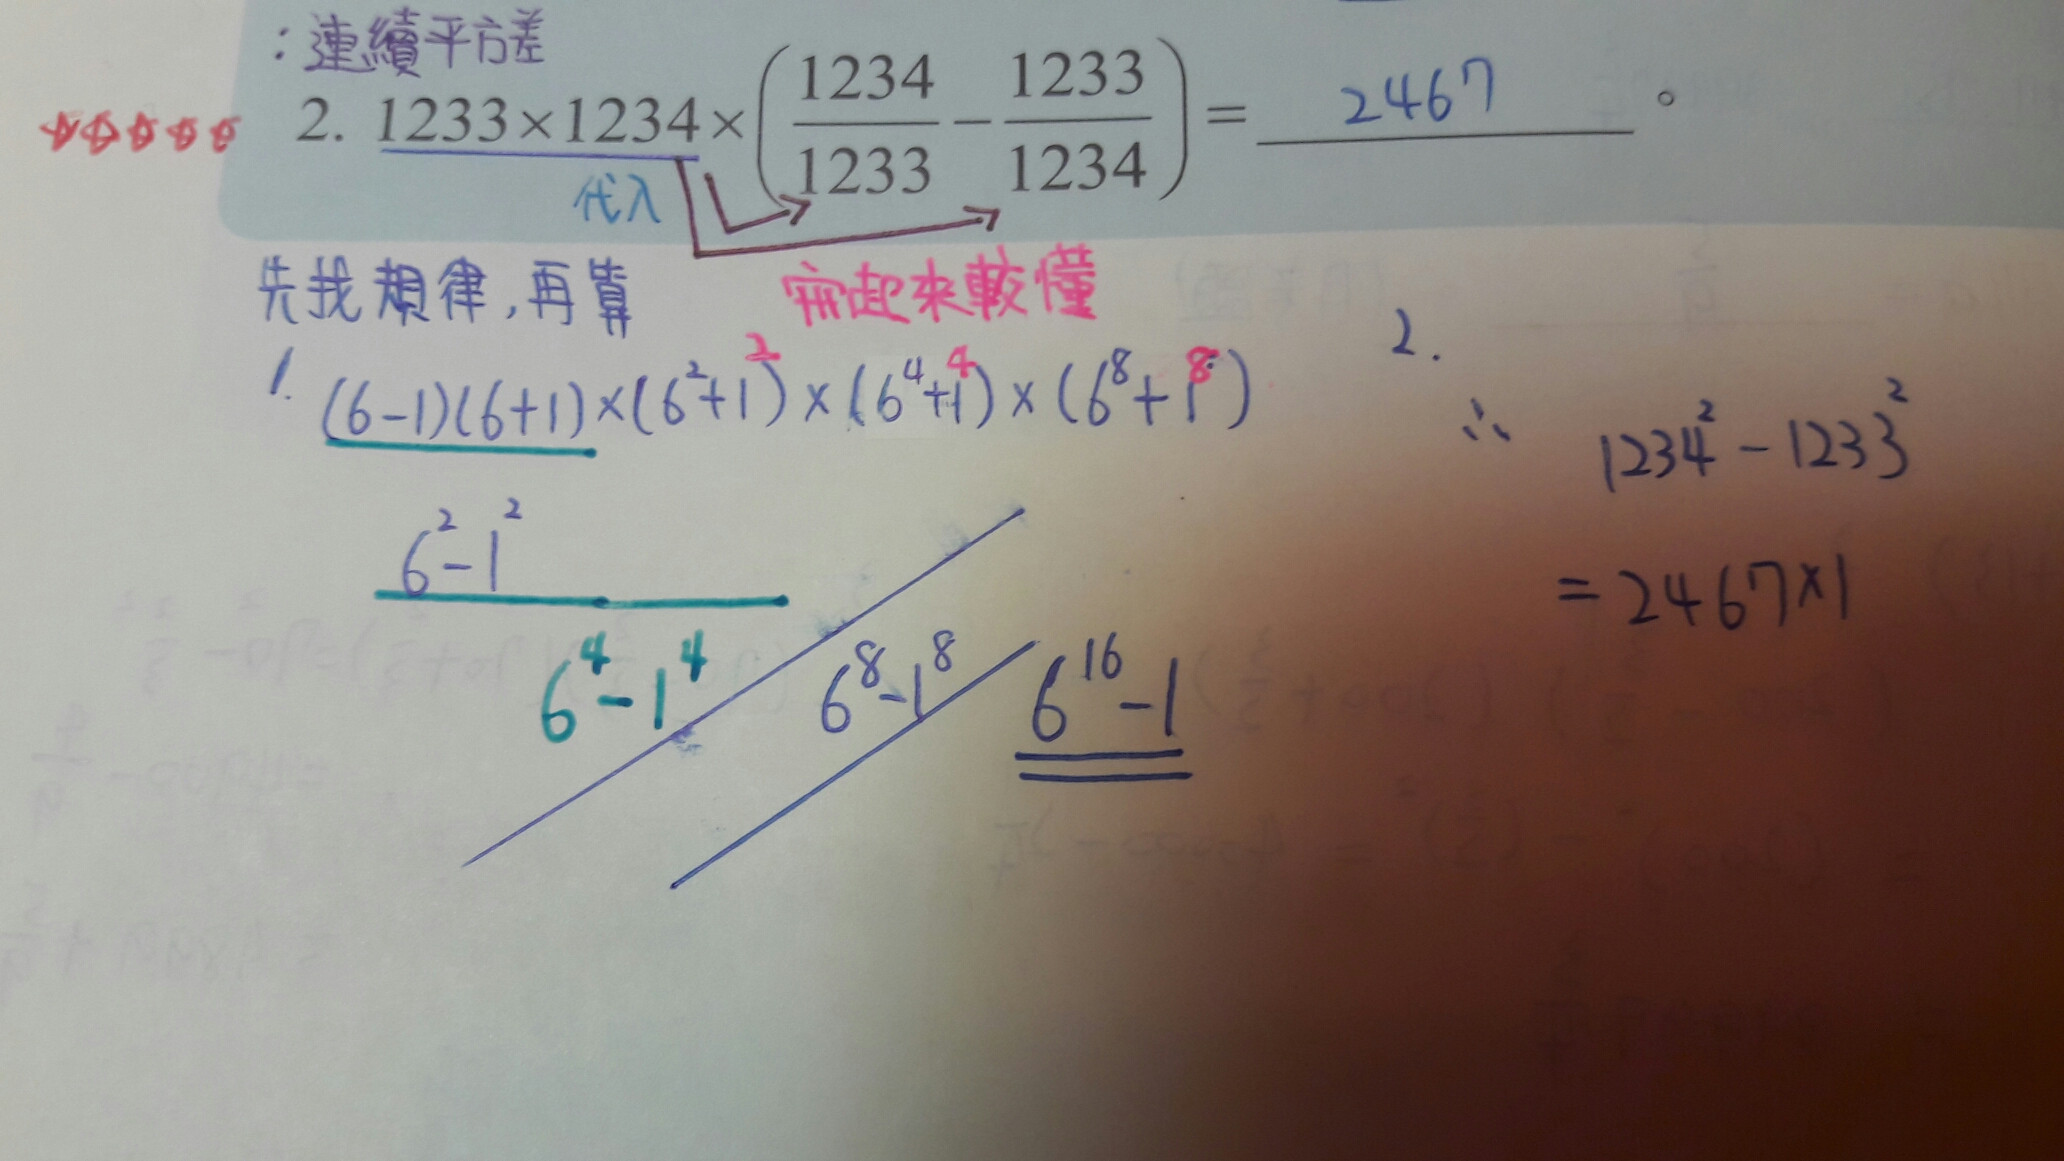 ：連續平方差
2. 1233×1234×(1234/1233 − 1233/1234) = 2467 。
代入
先找規律,再算
寫起來較懂
1. (6-1)(6+1)×(6²+1²)×(6⁴+1⁴)×(6⁸+1⁸)
6²-1²
6⁴-1⁴
6⁸-1⁸
6¹⁶-1
2.
∴ 1234²-1233²
=2467×1